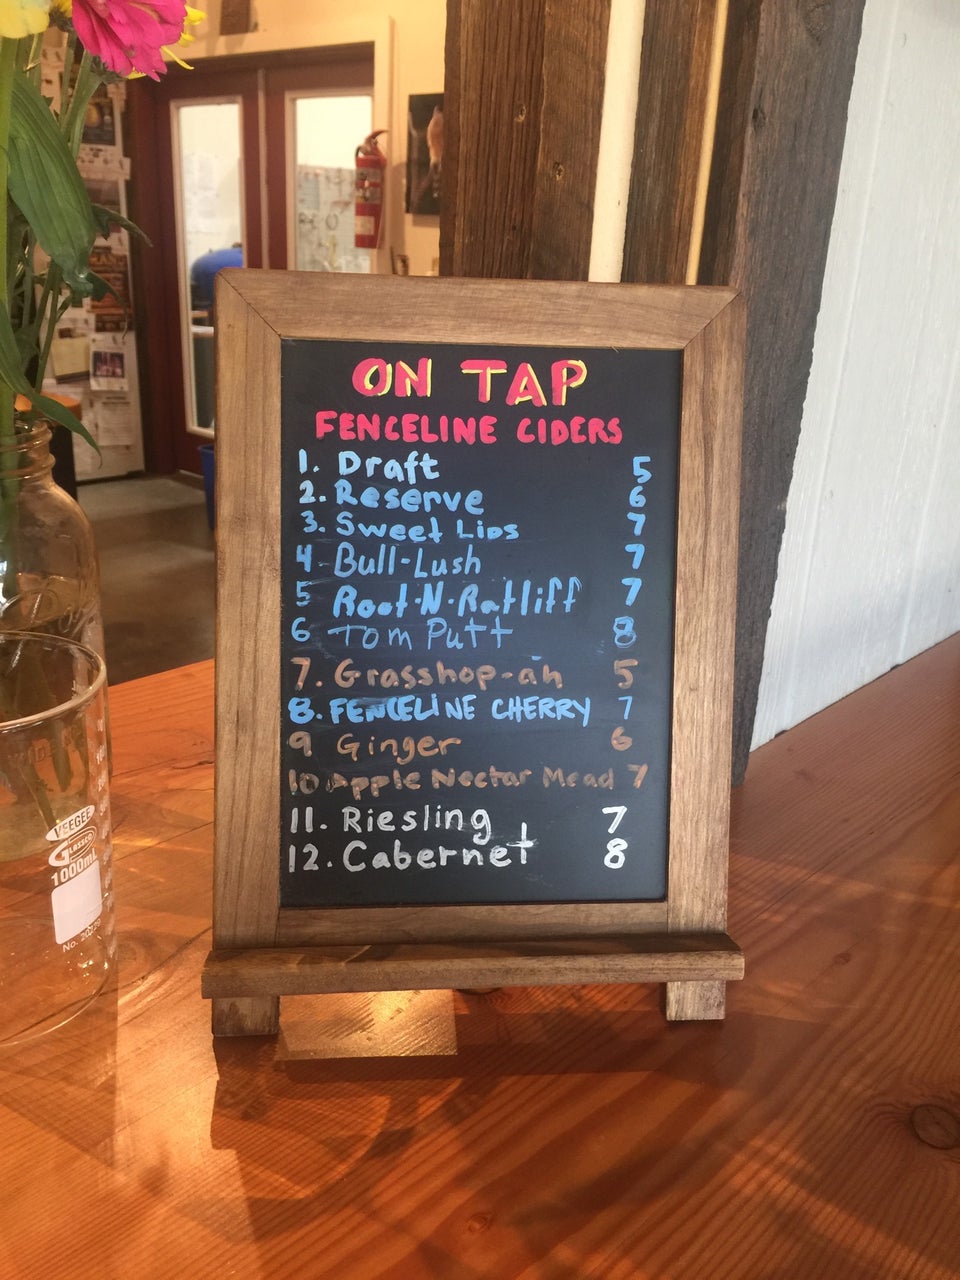 ON TAP
FENCELINE CIDERS
1. Draft 5
2. Reserve 6
3. Sweet Lips 7
4 Bull-Lush 7
5 Root-N-Ratliff 7
6 Tom Putt 8
7. Grasshop-ah 5
8. FENCELINE CHERRY 7
9 Ginger 6
10 Apple Nectar Mead 7
11. Riesling 7
12. Cabernet 8
VEEGEE
GLASSCO
1000mL